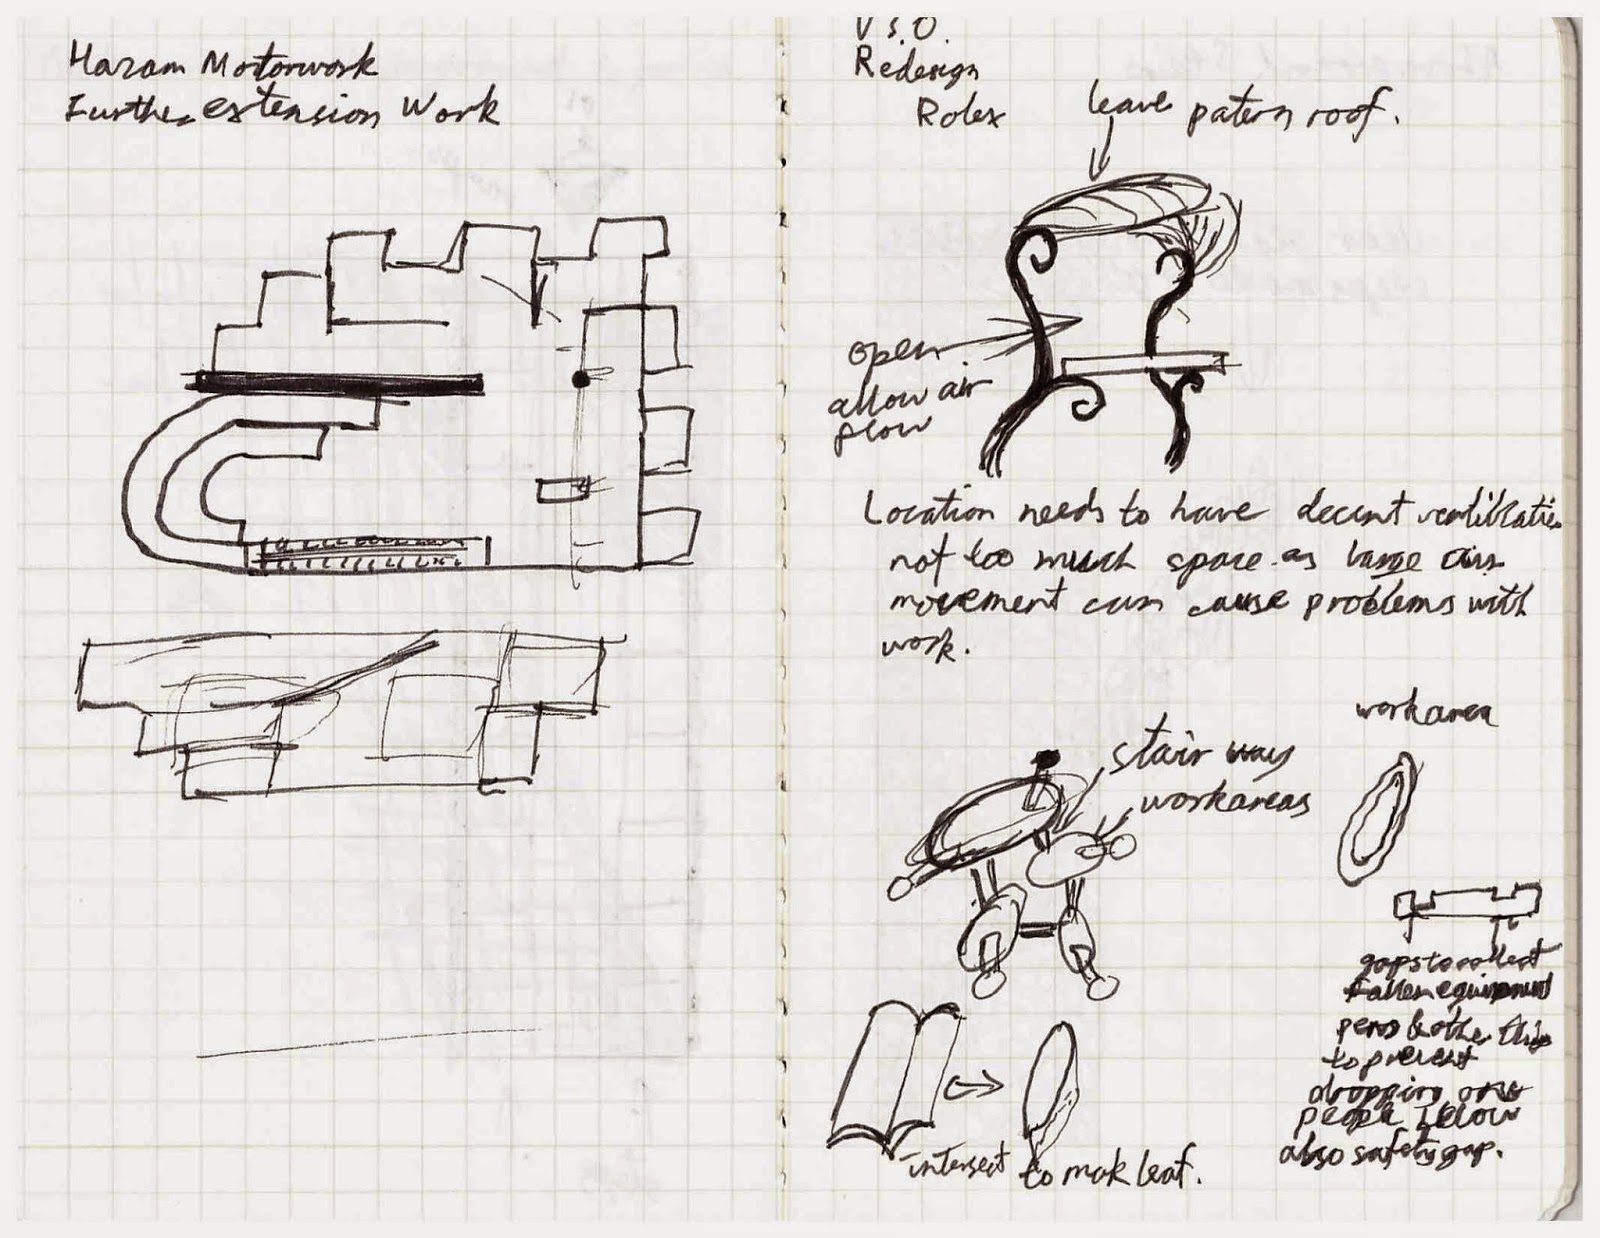 Haram Motorwork
Further extension Work
V S.O.
Redesign
Rolex
leave patern roof.
open
allow air
flow
Location needs to have decent ventiblation
not too much space as large air
movement can cause problems with
work.
workarea
stair ways
workareas
gaps to collect
Fallen equipment
pens & othe
to prevent
dropping onto
people below
also safety gap.
intersect to mak leaf.